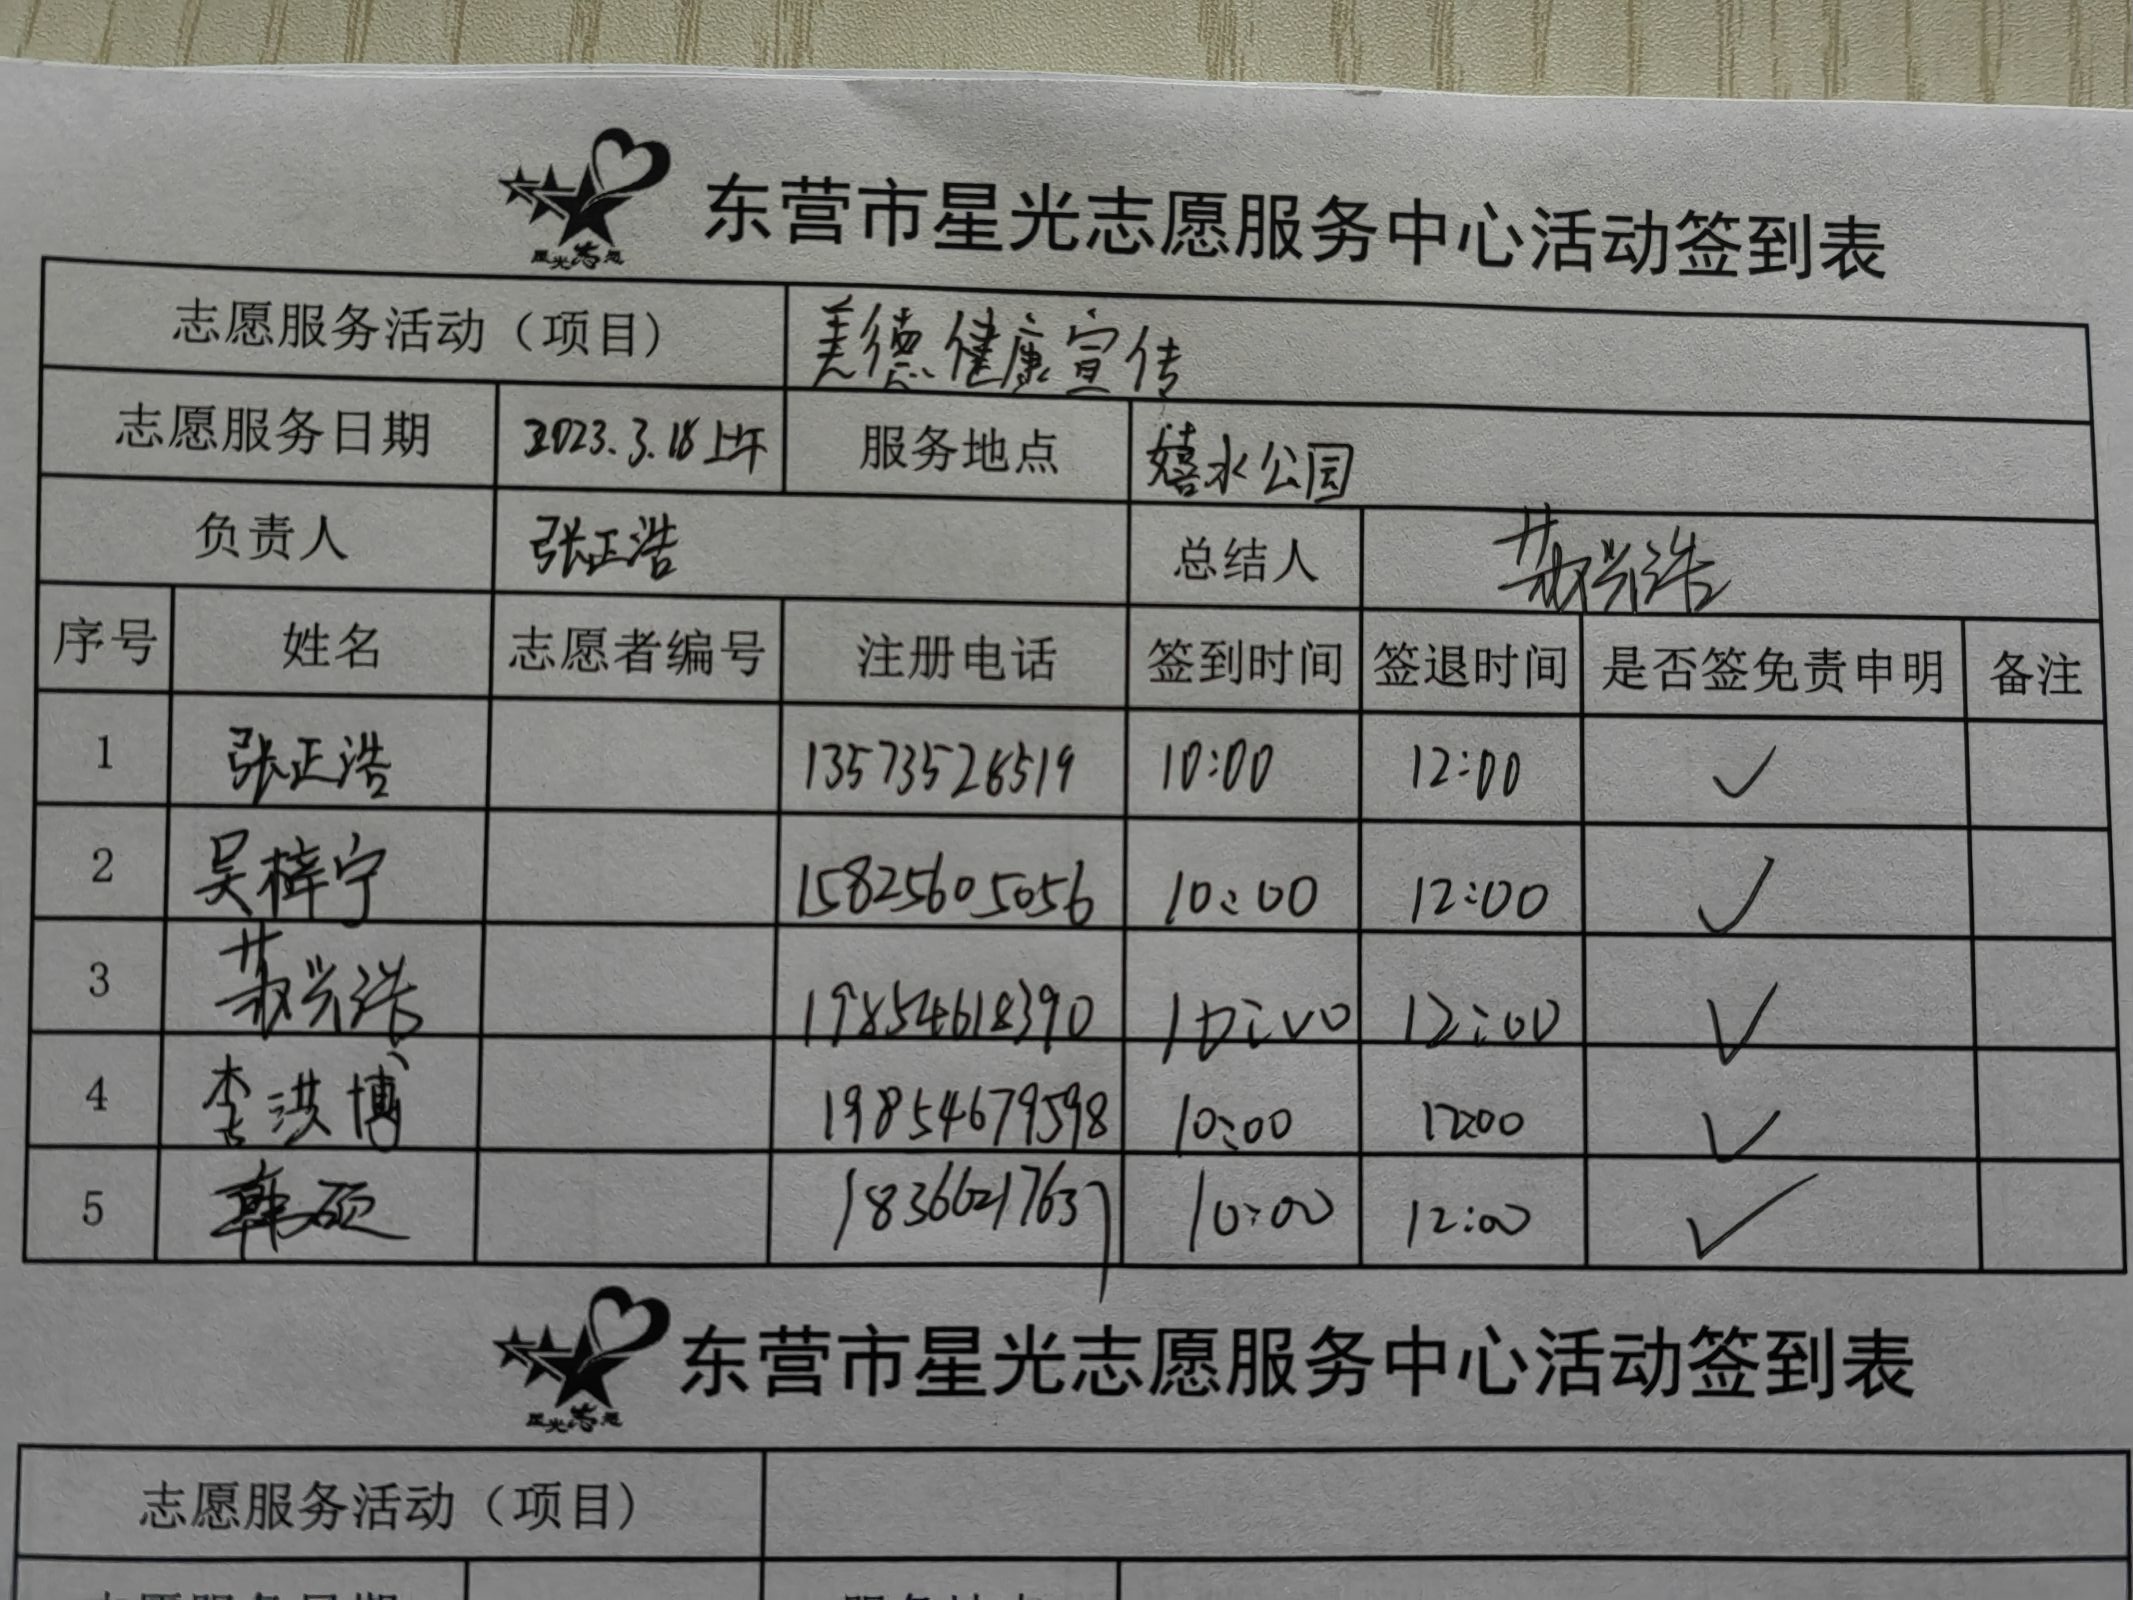 星光志愿
东营市星光志愿服务中心活动签到表
志愿服务活动（项目） 美德健康宣传
志愿服务日期 2023.3.18上午 服务地点 嬉水公园
负责人 张正浩 总结人 兴浩
序号 姓名 志愿者编号 注册电话 签到时间 签退时间 是否签免责申明 备注
1 张正浩 13573526519 10:00 12:00 ✓
2 吴梓宁 15825605056 10:00 12:00 ✓
3 兴浩 19854618390 10:00 12:00 ✓
4 李洪博 19854679598 10:00 12:00 ✓
5 韩硕 18366217637 10:00 12:00 ✓
星光志愿
东营市星光志愿服务中心活动签到表
志愿服务活动（项目）
志愿服务日期 服务地点